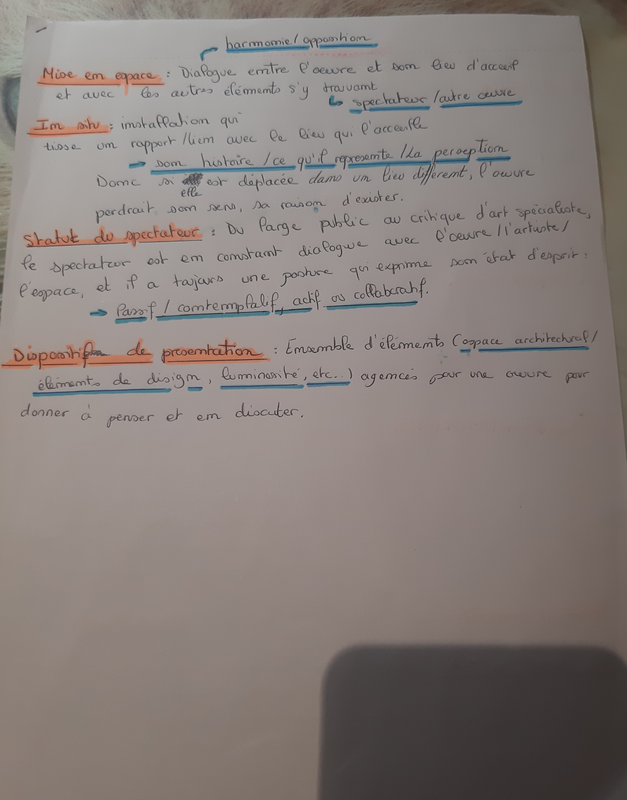 harmomie/opposition
Mise en espace : Dialogue entre l'oeuvre et son lieu d'accueil
et avec les autres éléments s'y trouvant
spectateur/autre oeuvre
In situ : installation qui
tisse un rapport/lien avec le lieu qui l'accueille
→ son histoire/ce qu'il représente/la perception
Donc si elle est déplacée dans un lieu différent, l'oeuvre
perdrait son sens, sa raison d'exister.
Statut du spectateur : Du large public au critique d'art spécialiste,
le spectateur est en constant dialogue avec l'oeuvre/l'artiste/
l'espace, et il a toujours une posture qui exprime son état d'esprit :
→ Passif/contemplatif, actif ou collaboratif.
Dispositif de présentation : Ensemble d'éléments (espace architectural/
éléments de disign, luminosité, etc...) agencés pour une oeuvre pour
donner à penser et en discuter.